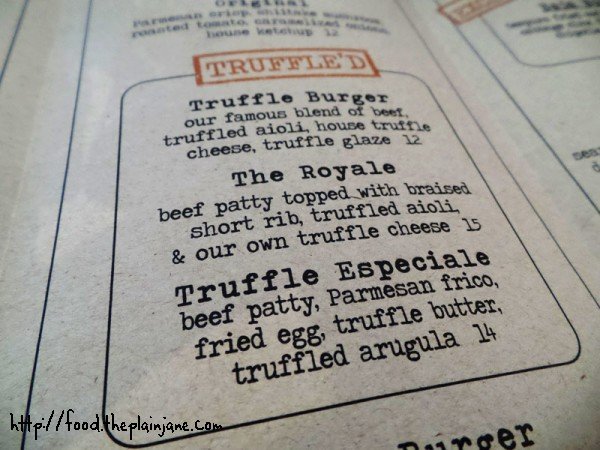 Original
Parmesan crisp, shiitake mushroom
roasted tomato, caramelized onions,
house ketchup 12
TRUFFLE'D
Truffle Burger
our famous blend of beef,
truffled aioli, house truffle
cheese, truffle glaze 12
The Royale
beef patty topped with braised
short rib, truffled aioli,
& our own truffle cheese 15
Truffle Especiale
beef patty, Parmesan frico,
fried egg, truffle butter,
truffled arugula 14
Burger
http://food.theplainjane.com